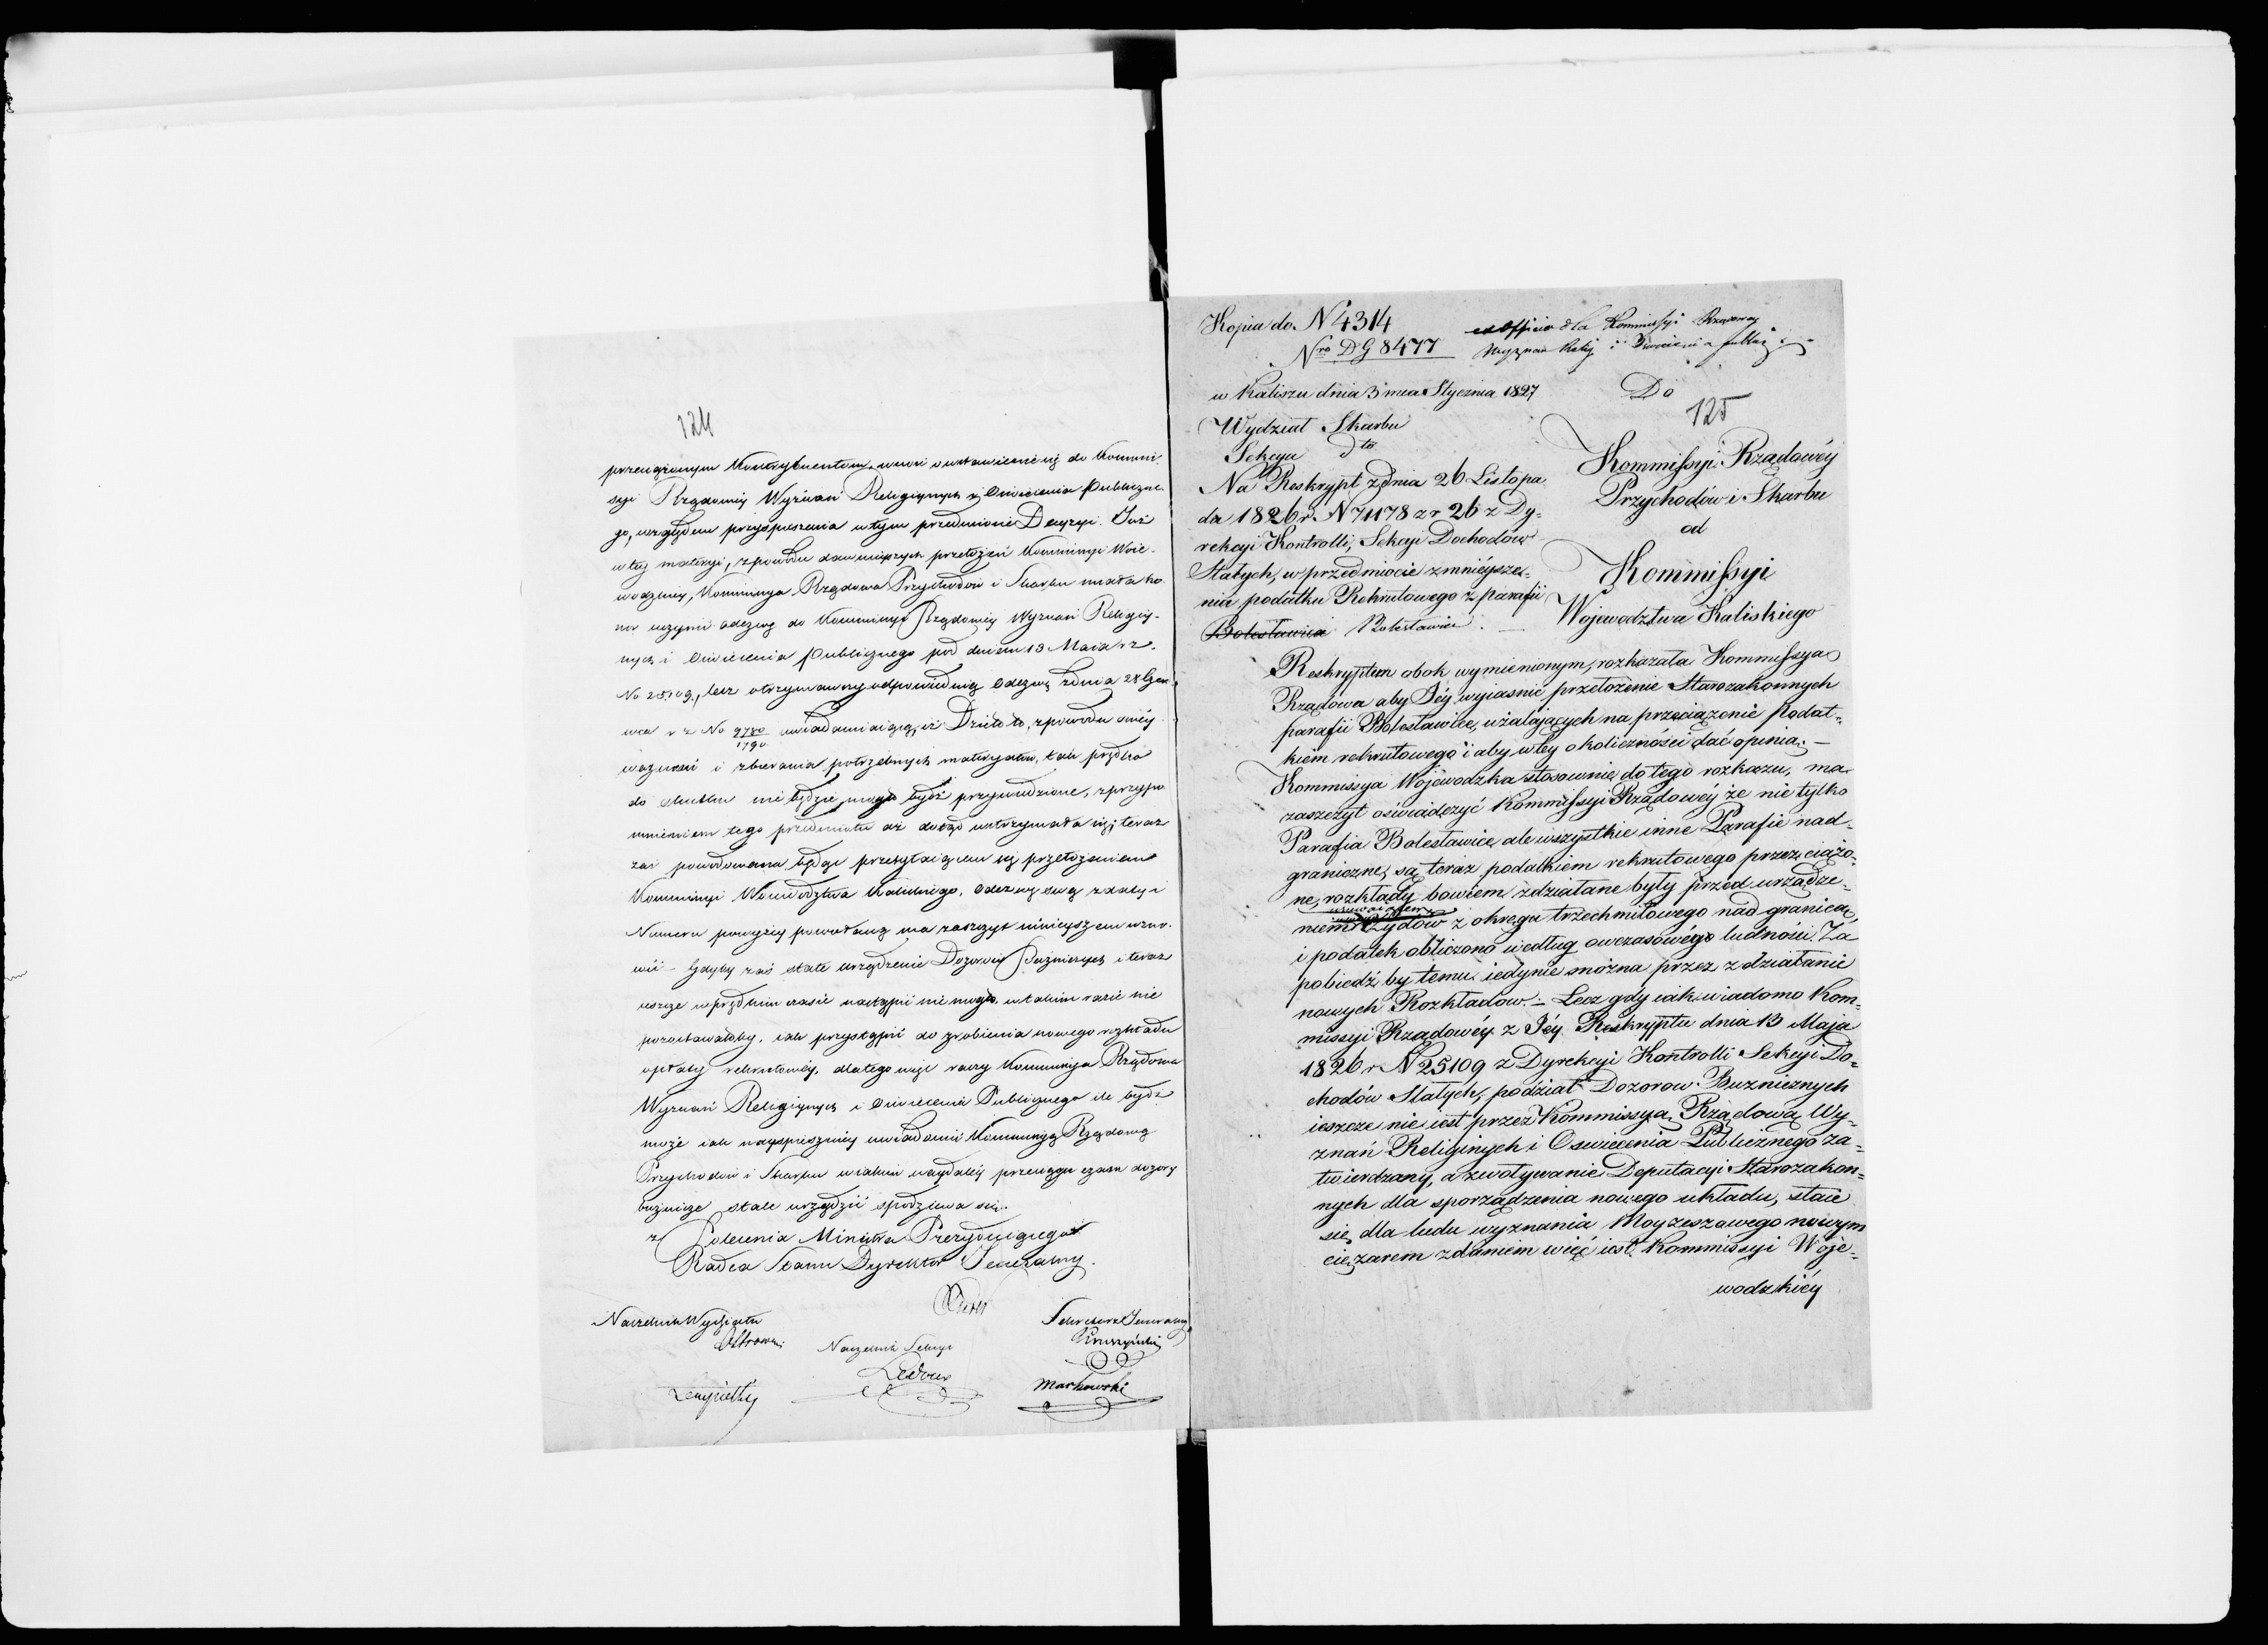 124
przeciążonym Kontrybuentom, wnosi o wstawienie się do Kommis-
syi Rządowéy Wyznań Religiynych i Oświecenia Publiczne-
go, względem przyspieszenia w tym przedmiocie Decyzyi. Już
w téy materyi, z powodu dawnieyszych przełożeń Kommissyi Woie-
wodzkiey, Kommissya Rządowa Przychodów i Skarbu miała ho-
nor uczynić odezwę do Kommissyi Rządowéy Wyznań Religiy-
nych i Oświecenia Publicznego pod dniem 13 Maia r z.
No 25109, lecz otrzymawszy odpowiednią Odezwę z dnia 28 Czer-
wca r z No 9780/1790 uwiadamiaiącą, iż Dzieło to, z powodu swéy
ważności i zbierania potrzebnych materyałów, tak prędko
do skutku nie będzie mogło bydź przywiedzione, z przypo-
mnieniem tego przedmiotu aż dotąd wstrzymała się; teraz
zaś powodowana będąc przesyłaiącem się przełożeniem
Kommissyi Woiewództwa Kaliskiego, Odezwę swą z daty i
Numeru powyżéy powołaną ma zaszczyt ninieyszem wzno-
wić. Gdyby zaś stałe urządzenie Dozorów Bużniczych i teraz
ieszcze w prędkim czasie nastąpić nie mogło, w takim razie nie
pozostawałoby, iak przystąpić do zrobienia nowego rozkładu
opłaty rekrutowéy, dlatego więc raczy Kommissya Rządowa
Wyznań Religiynych i Oświecenia Publicznego ile bydź
może iak nayspieszniéy uwiadomić Kommissyą Rządową
Przychodów i Skarbu w iakim naydaléy przeciągu czasu dozory
bużnicze stale urządzić spodziewa się.
z Polecenia Ministra Prezyduiącego
Radca Stanu Dyrektor Jeneralny.
Naczelnik Wydziału
Sekretarz Jeneralny
Kruszyński
Naczelnik Sekcyi
Markowski
Kopia do N 4314
Nro DG 8477
ex officio dla Kommissyi Rządowey
Wyznań Relig i Oświecenia publicz
w Kaliszu dnia 3 mca Stycznia 1827
Wydział Skarbu
Sekcya dto
Na Reskrypt z dnia 26 Listopa
da 1826 r. N 71178 z r 26 z Dy-
rekcyi Kontrolli, Sekcyi Dochodów
Stałych, w przedmiocie zmnieysze-
nia podatku Rekrutowego z parafii
Bolesławica Bolesławice.
Do
125
Kommissyi Rządowéy
Przychodów i Skarbu
od
Kommissyi
Województwa Kaliskiego
Reskryptem obok wymienionym, rozkazała Kommissya
Rządowa aby Jéy wyiaśnić przełożenie Starozakonnych
parafii Bolesławice, użalających na przeciążenie Podat-
kiem rekrutowego i aby w téy okoliczności dać opinią. —
Kommissya Wojewodzka stosownie do tego rozkazu, ma
zaszczyt oświadczyć Kommissyi Rządowéy że nie tylko
Parafia Bolesławice ale wszystkie inne Parafie nad-
graniczne, są teraz podatkiem rekrutowego przeciążo-
ne, rozkłady bowiem zdziałane były przed urządze-
niem Żydów z okręgu trzechmilowego nad granicą,
i podatek obliczono według owczasowégo ludności. Za
pobiedź by temu iedynie można przez zdziałanie
nowych Rozkładow. — Lecz gdy iak wiadomo Kom-
missyi Rządowéy z Jéy Reskryptu dnia 13 Maja
1826 r N 25109 z Dyrekcyi Kontrolli Sekcyi Do-
chodów Stałych, podział Dozorow Buzniczných
ieszcze nie iest przez Kommissyą Rządową Wy-
znań Religinych i Oswiecenia Publicznego za-
twierdzany, a zwoływanie Deputacyi Starozakon-
nych dla sporządzenia nowego układu, staie
się dla ludu wyznania Moyżeszowego nowym
ciężarem zdaniem więc iest Kommissyi Woje-
wodzkiéy